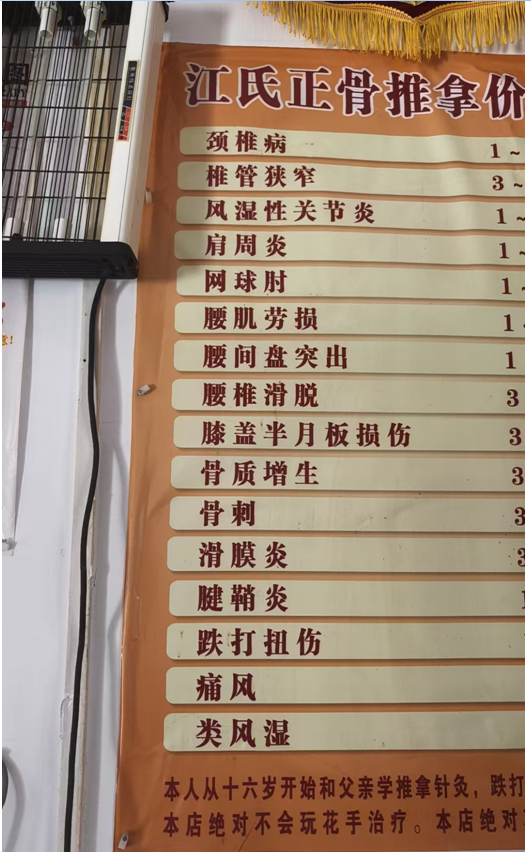 江氏正骨推拿价
颈椎病 1~
椎管狭窄 3~
风湿性关节炎 1~
肩周炎 1~
网球肘 1~
腰肌劳损 1
腰间盘突出 1
腰椎滑脱 3
膝盖半月板损伤 3
骨质增生 3
骨刺 3
滑膜炎 3
腱鞘炎 1
跌打扭伤
痛风
类风湿
本人从十六岁开始和父亲学推拿针灸，跌打
本店绝对不会玩花手治疗。本店绝对